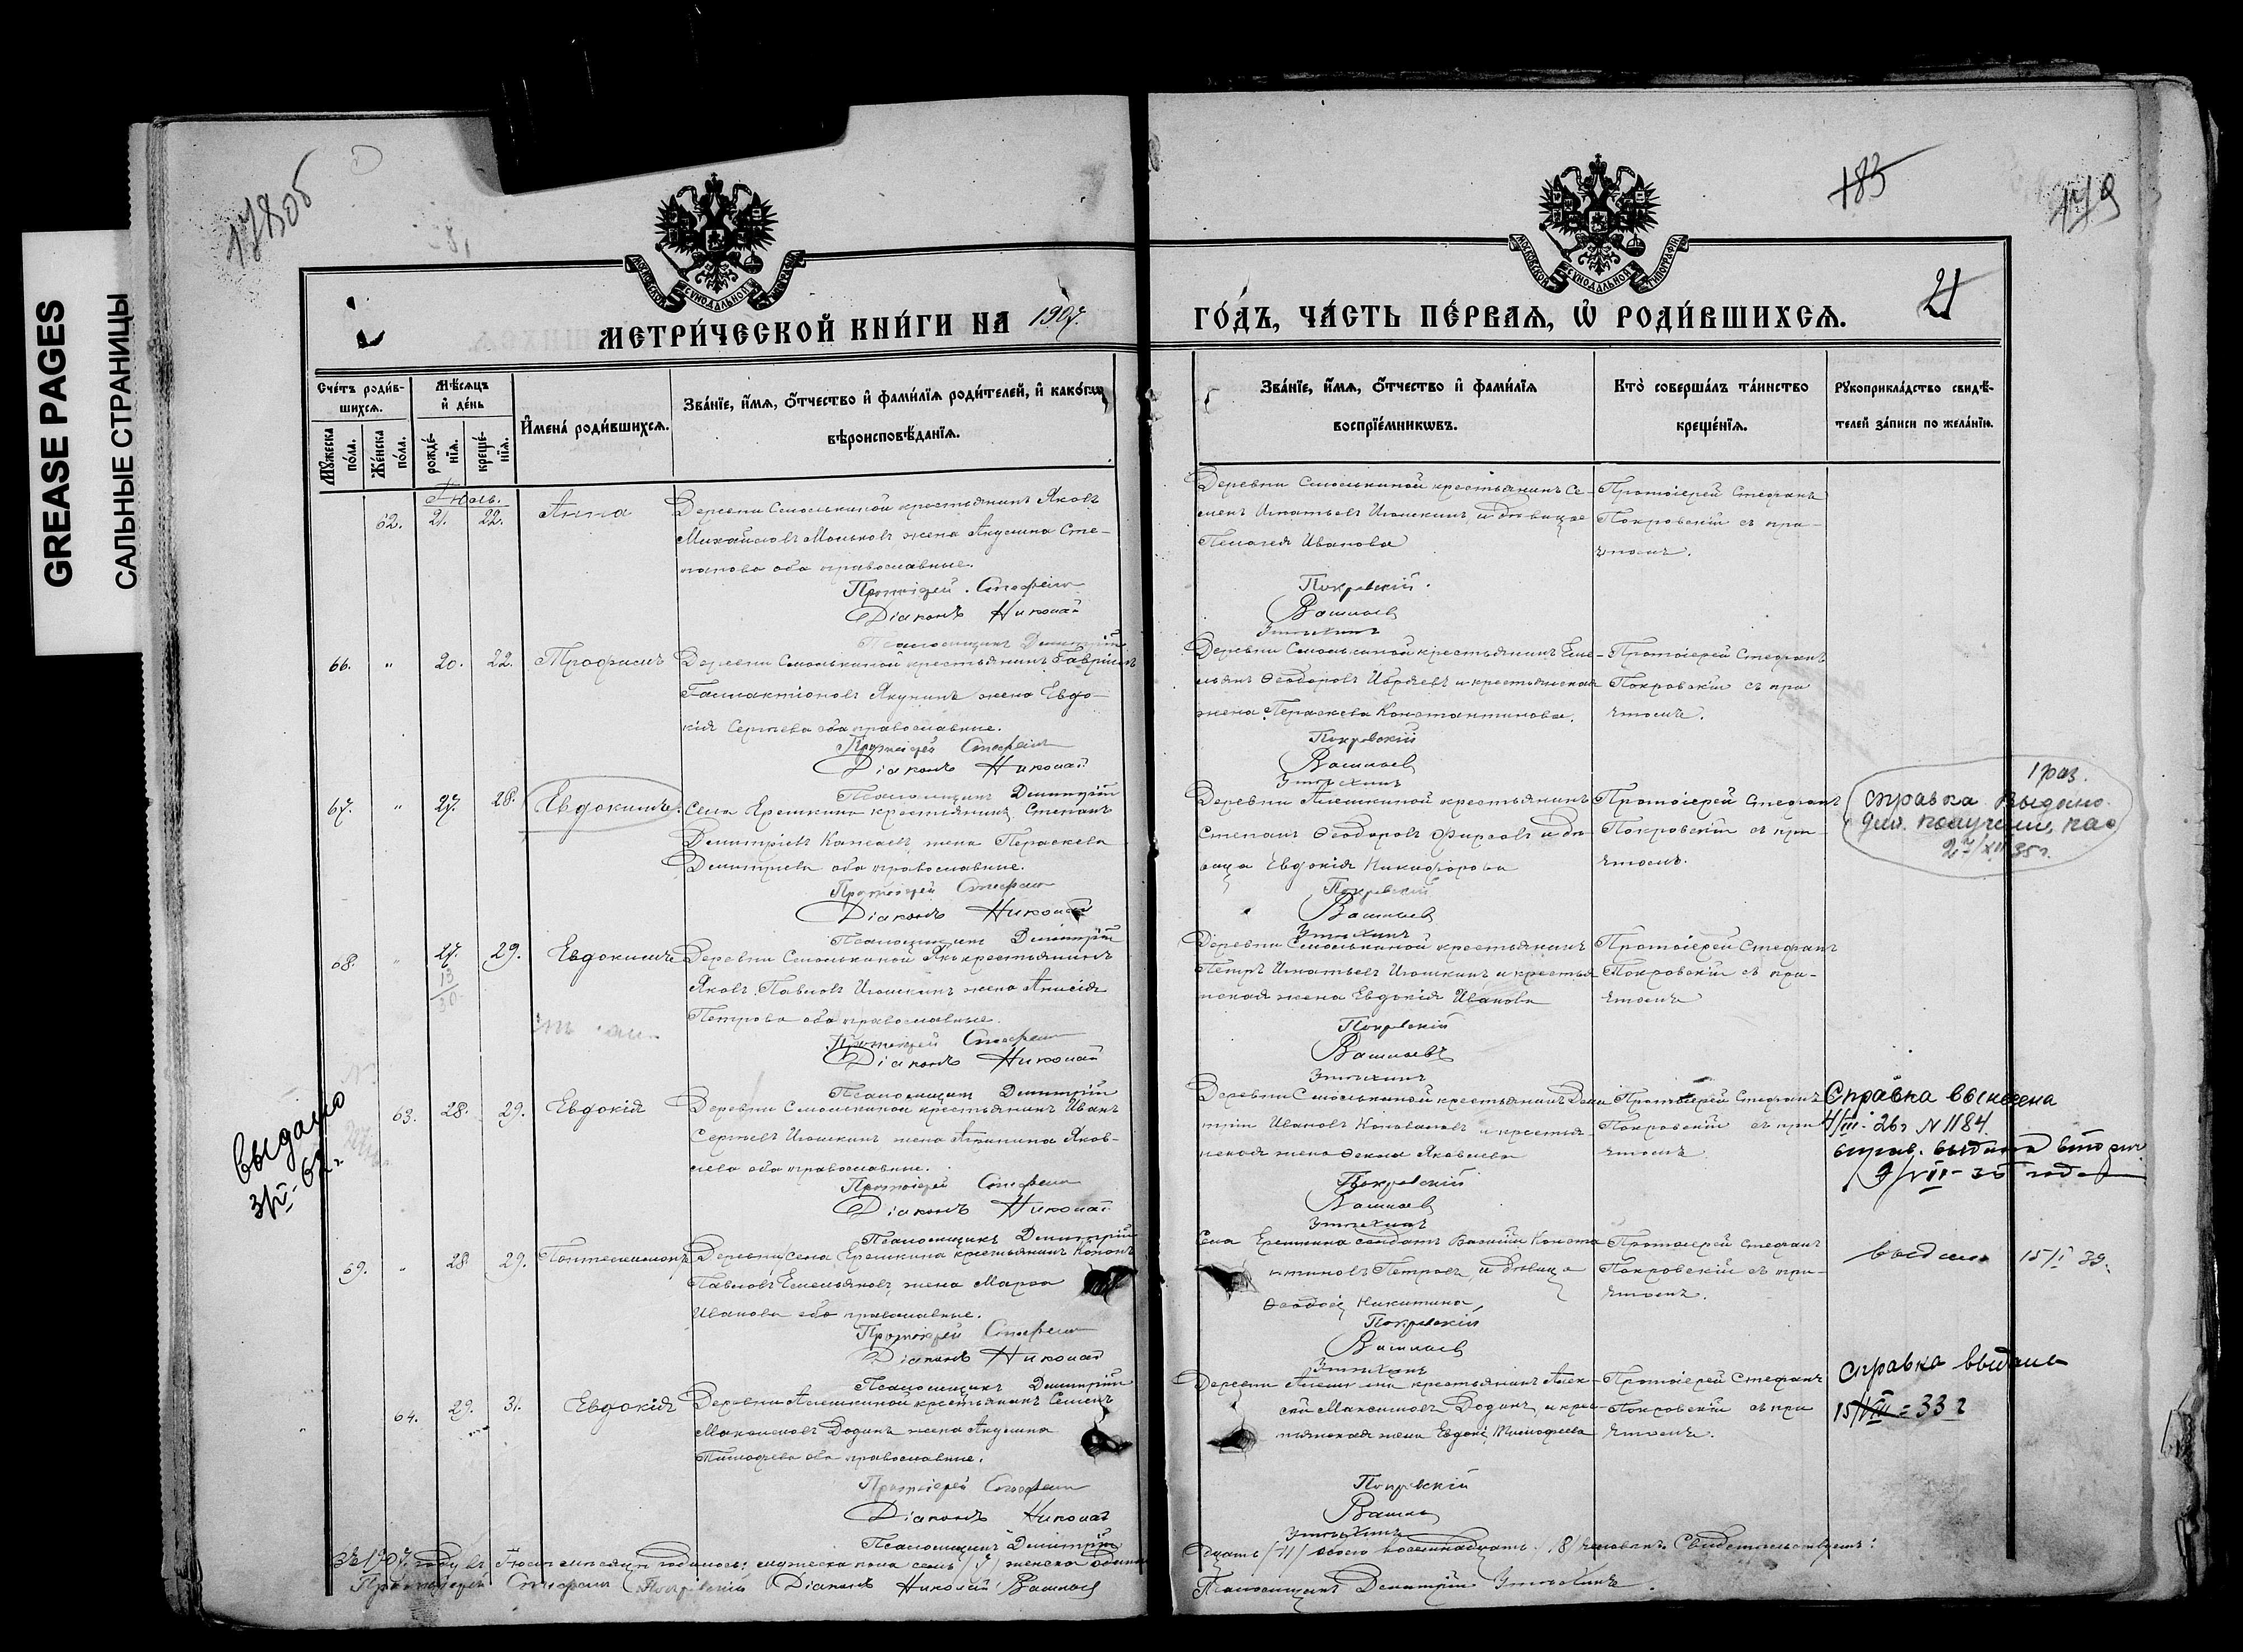 GREASE PAGES
САЛЬНЫЕ СТРАНИЦЫ
178об
183
179
21
МЕТРИ́ЧЕСКОЙ КНИ́ГИ НА 1907.
ГО́ДЪ, ЧА́СТЬ ПЕ́РВАЯ, Ѡ҆ РОДИ́ВШИХСЯ.
Сче́тъ роди́в-
шихся.
Мꙋжеска по́ла.
Же́нска по́ла.
Мѣ́сяцъ
и҆ де́нь
рожде́-
нїя.
креще́-
нїя.
И҆мена̀ роди́вшихся.
Зва́нїе, и҆́мя, ѻ҆́тчество и҆ фами́лїя роди́телей, и҆ како́гѡ
вѣроисповѣ́данїя.
Зва́нїе, и҆́мя, ѻ҆́тчество и҆ фами́лїя
воспрїе́мникѡвъ.
Кто̀ соверша́лъ та́инство
креще́нїя.
Рꙋкоприкла́дство свидѣ́-
телей за́писи по жела́нїю.
Іюль.
62. 21. 22. Анна
Деревни Смолькиной крестьянинъ Яковъ
Михайловъ Моньковъ жена Акулина Сте-
панова оба православные.
Протоіерей Стефанъ
Діаконъ Николай
Псаломщикъ Димитрій
Деревни Смолькиной крестьянинъ Се-
менъ Игнатьевъ Игошкинъ и дѣвица
Пелагея Иванова
Покровскій.
Васильевъ
Утѣхинъ
Протоіерей Стефанъ
Покровскій съ при-
чтомъ.
66. " 20. 22. Трофимъ
Деревни Смолькиной крестьянинъ Гавріилъ
Галактіоновъ Якунинъ жена Евдо-
кія Сергѣева оба православные.
Протоіерей Стефанъ
Діаконъ Николай
Псаломщикъ Димитрій
Деревни Смолькиной крестьянинъ Еме-
льянъ Ѳеодоровъ и крестьянская
жена Параскева Константинова.
Покровскій
Васильевъ
Утѣхинъ
Протоіерей Стефанъ
Покровскій съ при
чтомъ.
67. " 27. 28. Евдокимъ.
Села Ерешкина крестьянинъ Степанъ
Димитріевъ жена Параскева
Димитріева оба православные.
Протоіерей Стефанъ
Діаконъ Николай
Псаломщикъ Димитрій
Деревни Алешкиной крестьянинъ
Степанъ Ѳеодоровъ Фирсовъ и дѣ-
вица Евдокія Никифорова
Покровскій
Васильевъ
Утѣхинъ
Протоіерей Стефанъ
Покровскій съ при-
чтомъ.
1 раз.
справка выдано
для получени. пас
27/XII 35 г.
68. " 27. 29. Евдокимъ
13
30
Деревни Смолькиной Яко крестьянинъ
Яковъ Павловъ Игошкинъ жена Анисія
Петрова оба православные.
Протоіерей Стефанъ
Діаконъ Николай
Псаломщикъ Димитрій
Деревни Смолькиной крестьянинъ
Петръ Игнатьевъ Игошкинъ и крестья-
нская жена Евдокія Иванова
Покровскій
Васильевъ
Утѣхинъ
Протоіерей Стефанъ
Покровскій съ при-
чтомъ
выдано
63. 28. 29. Евдокія
Деревни Смолькиной крестьянинъ Иванъ
Сергѣевъ Игошкинъ жена Яков-
лева оба православные.
Протоіерей Стефанъ
Діаконъ Николай
Псаломщикъ Димитрій
Деревни Смолькиной крестьянинъ Дими
трій Ивановъ Коноваловъ и крестья-
нская жена Ѳекла Яковлева
Покровскій
Васильевъ
Утѣхинъ
Протоіерей Стефанъ
Покровскій съ при
чтомъ
Справка
4/III-26 г N 1184.
справ. выдана
69. " 28 29. Пантелеимонъ
Деревни/села Ерешкина крестьянинъ Кононъ
Павловъ Емельяновъ жена Марѳа
Иванова оба православные.
Протоіерей Стефанъ
Діаконъ Николай
Псаломщикъ Димитрій
Села Ерешкина солдатъ Василій Конста
нтиновъ Петровъ и дѣвица
Никитина,
Покровскій
Васильевъ
Утѣхинъ
Протоіерей Стефанъ
Покровскій съ при-
чтомъ.
выдано 15/I 39.
64. 29. 31. Евдокія
Деревни Алешкиной крестьянинъ Семенъ
Максимовъ Водинъ жена Акулина
Тимоѳеева оба православные.
Протоіерей Стефанъ
Діаконъ Николай
Псаломщикъ Димитрій
Деревни крестьянинъ Алек-
сѣй Максимовъ Водинъ, и крес-
тьянская жена Тимоѳеева
Покровскій
Утѣхинъ
Протоіерей Стефанъ
Покровскій съ при
чтомъ.
справка выдана
15/VIII = 33 г
Въ 1907 году въ Іюлѣ мѣсяцѣ родилось: мужеска пола семь /7/ женска одинна
дцать /11/ всего восемнадцать /18/ человѣкъ. Свидѣтельствуемъ:
Протоіерей Стефанъ Покровскій Діаконъ Николай Васильевъ
Псаломщикъ Димитрій Утѣхинъ.